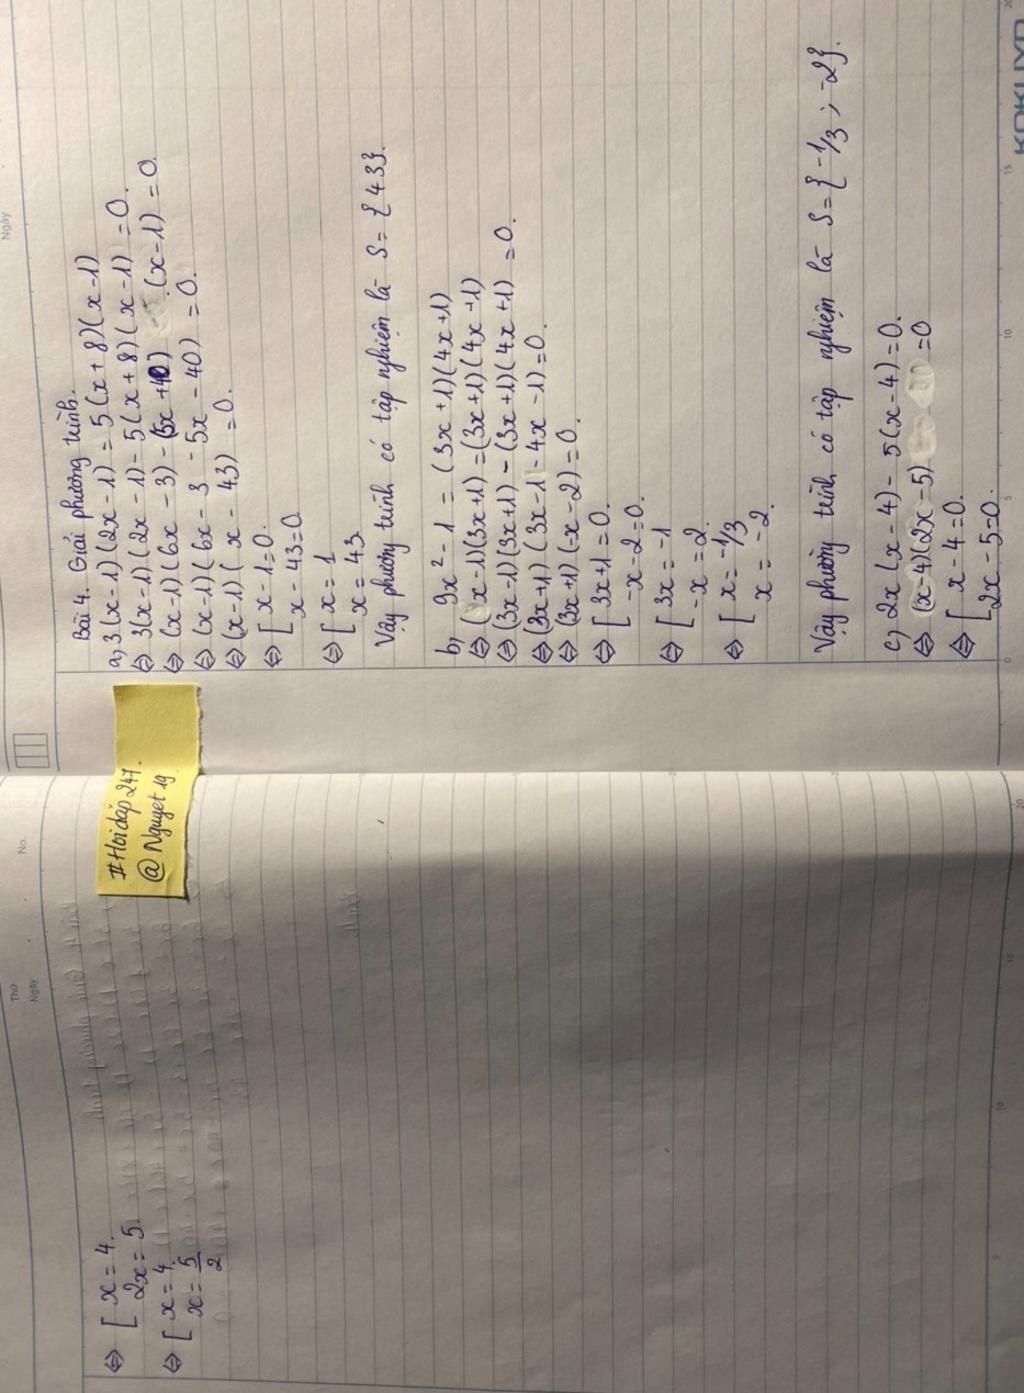 Ngày
Bài 4. Giải phương trình.
a, 3(x-1)(2x-1) = 5(x+8)(x-1)
⇔ 3(x-1)(2x-1) - 5(x+8)(x-1) = 0.
⇔ (x-1)(6x-3) - (5x+40)(x-1) = 0.
⇔ (x-1)(6x-3 - 5x-40) = 0.
⇔ (x-1)(x-43) = 0.
⇔ [ x-1=0.
x-43=0
⇔ [ x=1
x=43
Vậy phương trình có tập nghiệm là S={43}.
b, 9x²-1 = (3x+1)(4x+1)
⇔ (3x-1)(3x+1)=(3x+1)(4x+1)
⇔ (3x-1)(3x+1) - (3x+1)(4x+1) = 0.
⇔ (3x+1)(3x-1-4x-1)=0.
⇔ (3x+1)(-x-2)=0.
⇔ [ 3x+1=0.
-x-2=0.
⇔ [ 3x=-1
-x=2.
⇔ [ x=-1/3
x=-2.
Vậy phương trình có tập nghiệm là S={-1/3; -2}.
c, 2x(x-4) - 5(x-4)=0.
⇔ (x-4)(2x-5) =0
⇔ [ x-4=0.
2x-5=0.
0 5 10 15 20
#Hoidap247.
@Nguyet19
No.
Thứ
Ngày
⇔ [ x=4.
2x=5.
⇔ [ x=4.
x=5/2
5 10 15 20